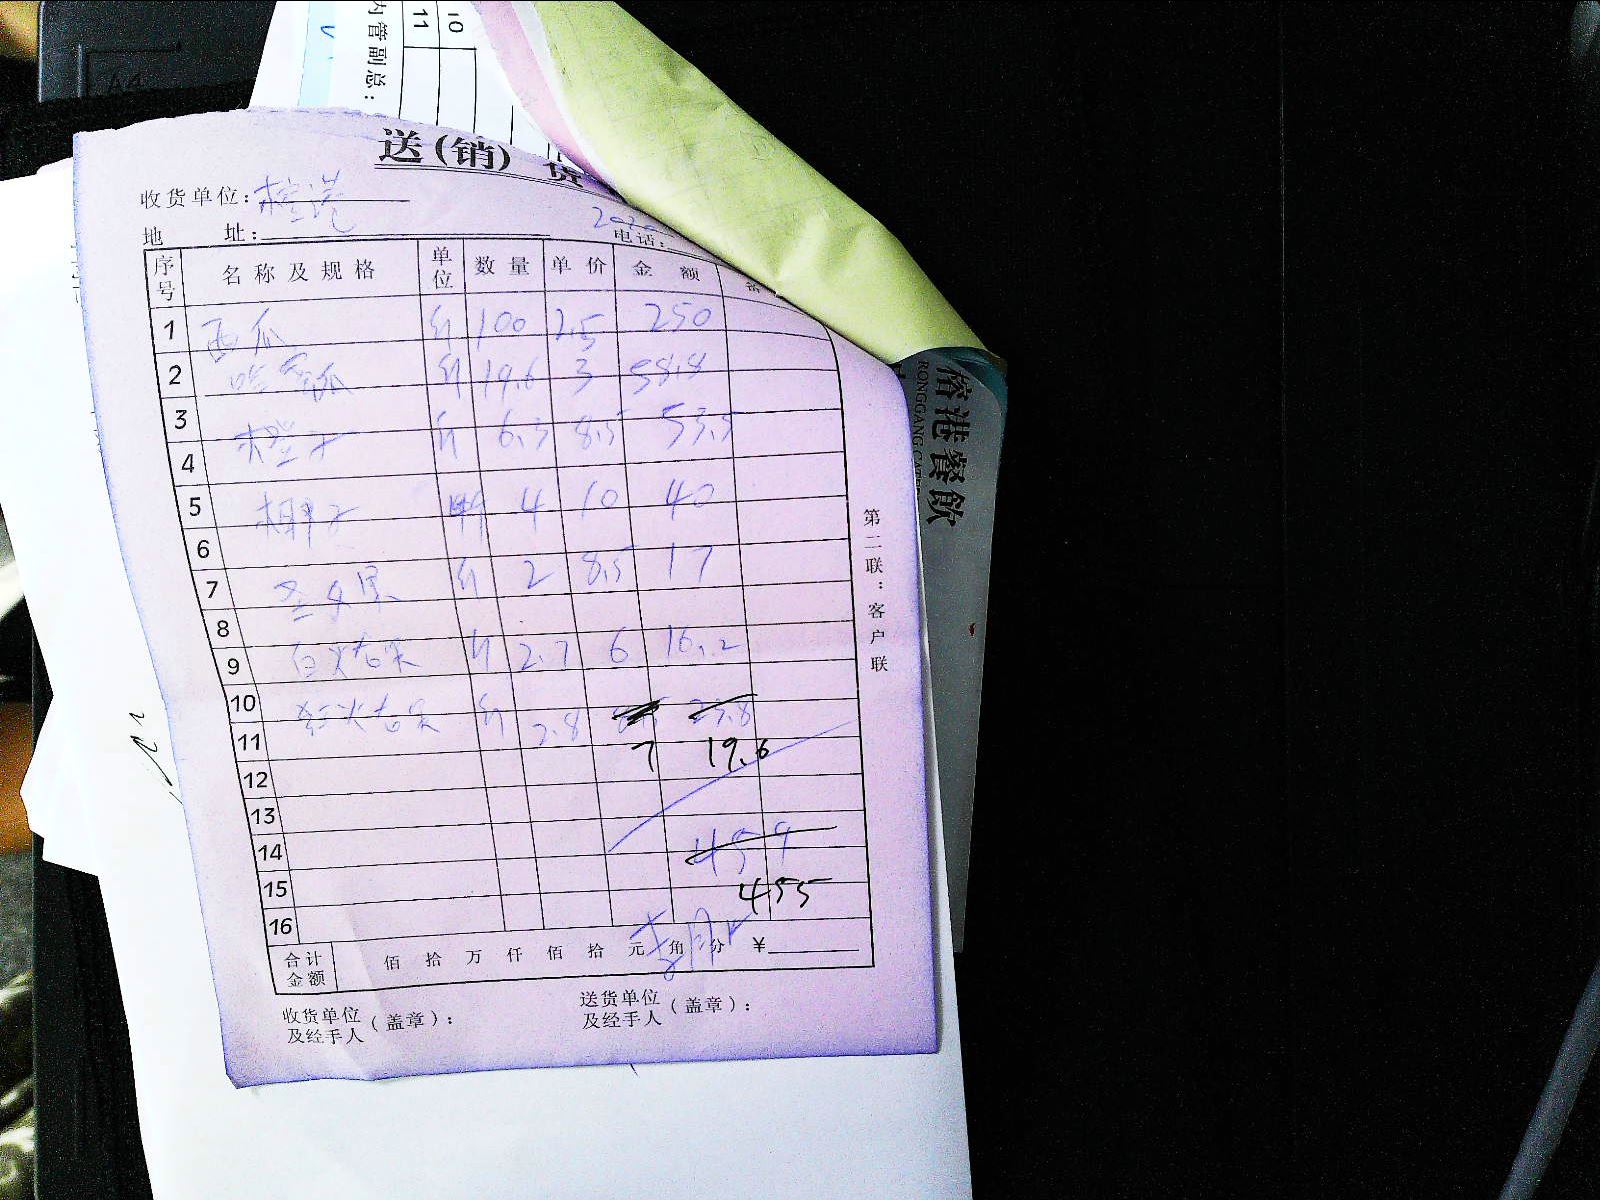 10
11
内管副总：
A4
送(销)货
收货单位：榕港
地 址：
电话：
序号 名称及规格 单位 数量 单价 金额
1 西瓜 斤 100 2.5 250
2 哈密瓜 斤 19.6 3 58.8
3 橙子 斤 6.3 8.5 53.5
4
5 柚子 4 10 40
6
7 圣女果 斤 2 8.5 17
8
9 白火龙果 斤 2.7 6 16.2
10 红火龙果 斤 2.8 23.8
11 7 19.6
12
13
14 459
15 455
16
合计金额 佰 拾 万 仟 佰 拾 元 角 分 ¥
收货单位及经手人（盖章）：
送货单位及经手人（盖章）：
第二联：客户联
榕港餐飲